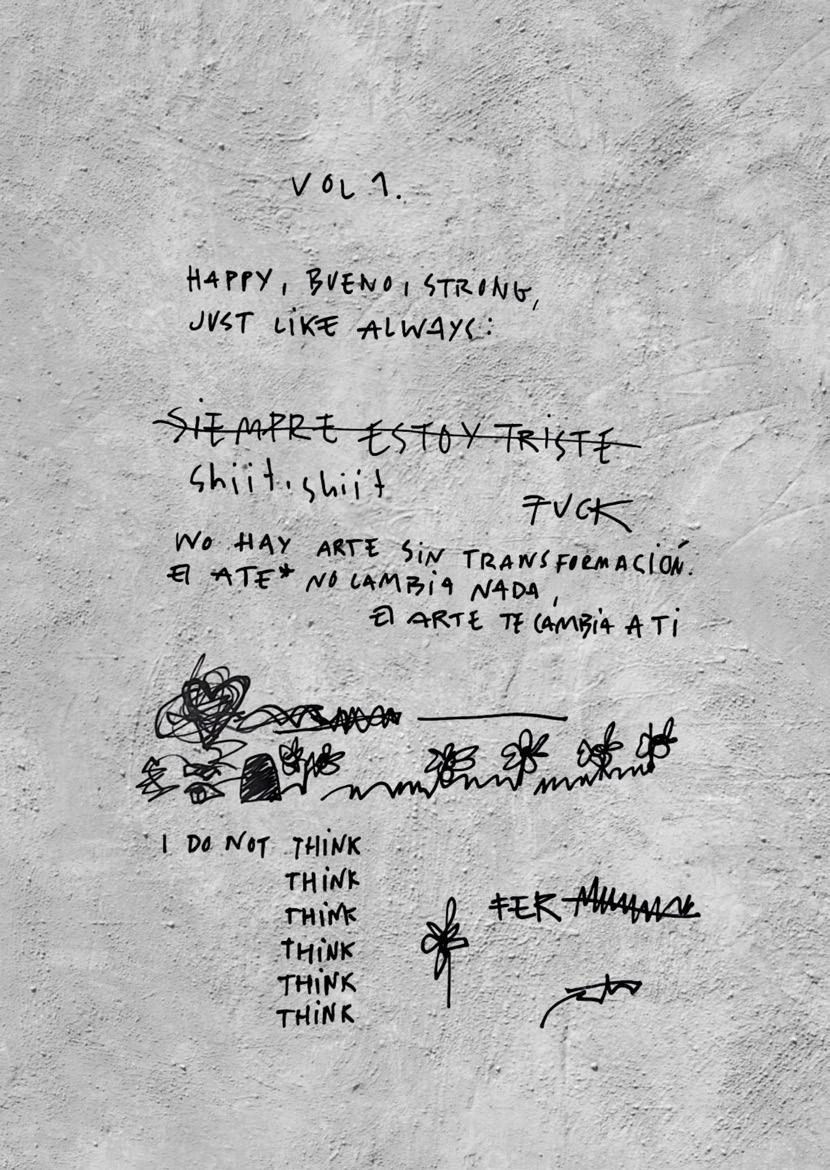 VOL 1.
HAPPY, BUENO, STRONG,
JUST LIKE ALWAYS:
SIEMPRE ESTOY TRISTE
shiit. shiit
FUCK
NO HAY ARTE SIN TRANSFORMACIÓN.
El ATE* NO CAMBIA NADA,
El ARTE TE CAMBIA A TI
I DO NOT THINK
THINK
THINK
THINK
THINK
THINK
FER